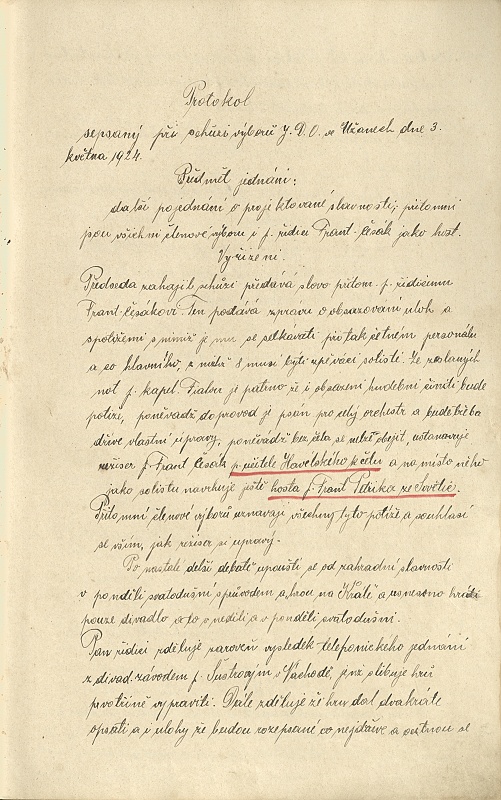 Protokol
sepsaný při schůzi výborů J. D. O. ve Užanech dne 3.
května 1924.
Předmět jednání:
další pojednání o projektované slavnosti; přítomni
jsou všichni členové výboru i p. řídící Frant. Česák jako host.
Vyřízení.
Předseda zahajil schůzi předává slovo přítom. p. řídícímu
Frant. Česákovi. Ten podává zprávu o obsazování uloh a
spolužemi s nimiž je mu se setkávati při tak četném personálu
a co hlavního, z nichž 8 musí býti zpěváci solisté. Ze zaslaných
not p. kapel. Fialou je patrno že i obsazení hudební činiti bude
potíže, poněvadž doprovod je psán pro celý orchestr a bude třeba
dříve vlastní úpravy, poněvádž bez čela se nelze obejít, ustanovuje
režiser p. Frant Česák p. učitele Havelského k čelu a na místo něho
jako solistu navrhuje ještě hosta p. Frant Petrika ze Světlé.
Přítomní členové výborů uznavají všechny tyto potíže a souhlasí
se vším, jak režiser si upravy.
Po nastalé delší debatě upouští se od zahradní slavnosti
v pondělí svatodušní s průvodem a hrou na Krále a usneseno hráti
pouze divadlo a to v neděli a v pondělí svatodušní.
Pan řídící sděluje zároveň vysledek telefonického jednání
z divad. závodem p. Šustrovým v Náchodě, jenž slibuje hru
prvotřídně vypraviti. Dále zděluje že hru dal dvakráte
opsati a i ulohy že budou rozepsané co nejdříve a octnou se